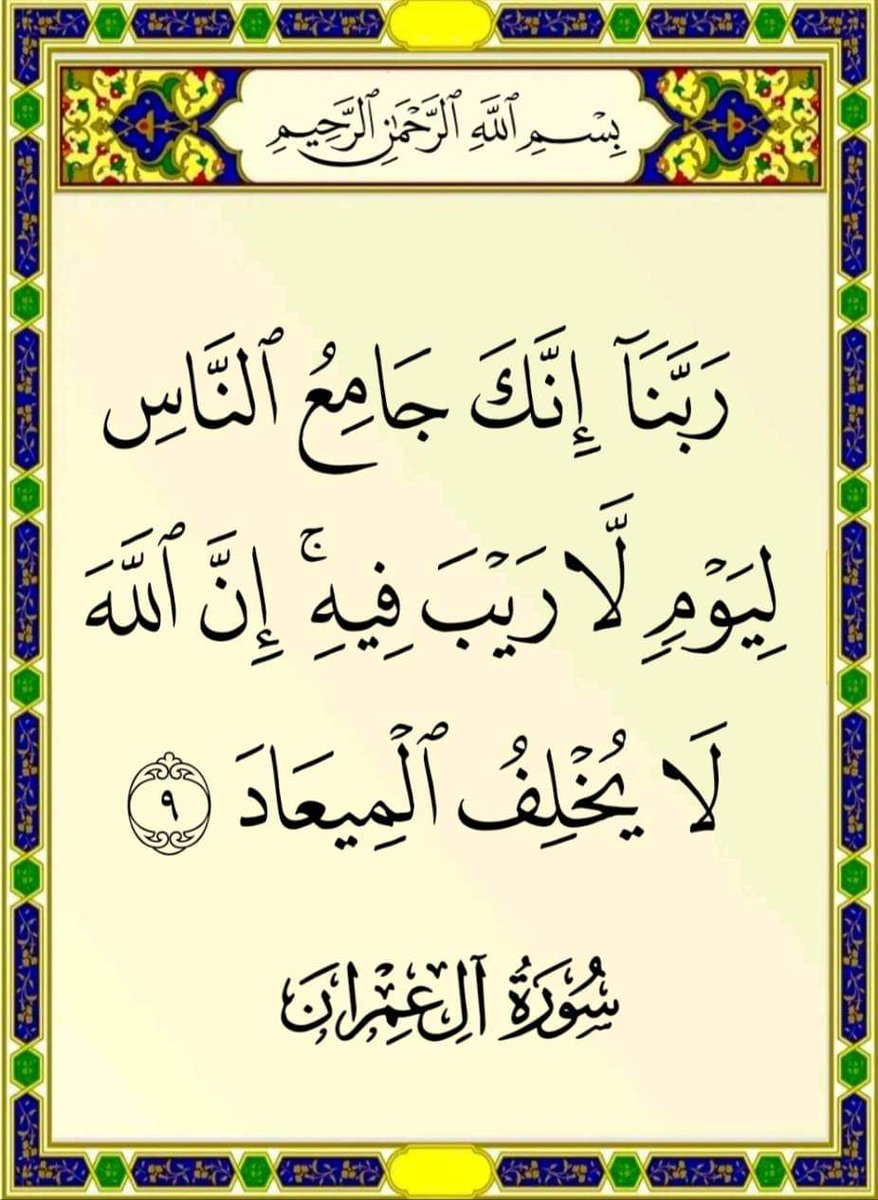 بِسْمِ ٱللَّهِ ٱلرَّحْمَٰنِ ٱلرَّحِيمِ
رَبَّنَآ إِنَّكَ جَامِعُ ٱلنَّاسِ
لِيَوْمٍ لَّا رَيْبَ فِيهِ ۚ إِنَّ ٱللَّهَ
لَا يُخْلِفُ ٱلْمِيعَادَ ٩
سُورَةُ آلِ عِمْرَانَ